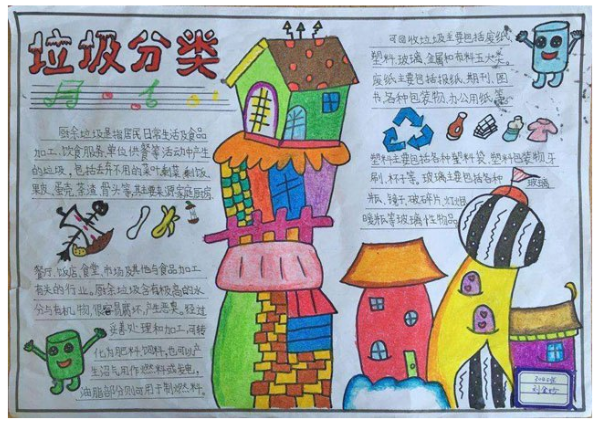 垃圾分类
厨余垃圾是指居民日常生活及食品
加工、饮食服务、单位供餐等活动中产生
的垃圾，包括丢弃不用的菜叶、剩菜、剩饭、
果皮、蛋壳、茶渣、骨头等，其主要来源家庭厨房、
餐厅、饭店、食堂、市场及其他与食品加工
有关的行业。厨余垃圾含有极高的水
分与有机物，很容易腐坏，产生恶臭。经过
妥善处理和加工，可转
化为肥料、饲料，也可以产
生沼气用作燃料或发电，
油脂部分则可用于制燃料。
可回收垃圾主要包括废纸、
塑料、玻璃、金属和布料五大类。
废纸主要包括报纸、期刊、图
书、各种包装物、办公用纸等
塑料主要包括各种塑料袋、塑料包装物、牙
刷、杯子等。玻璃主要包括各种
玻璃
瓶、镜子、破碎片、灯泡
暖瓶等玻璃性物品